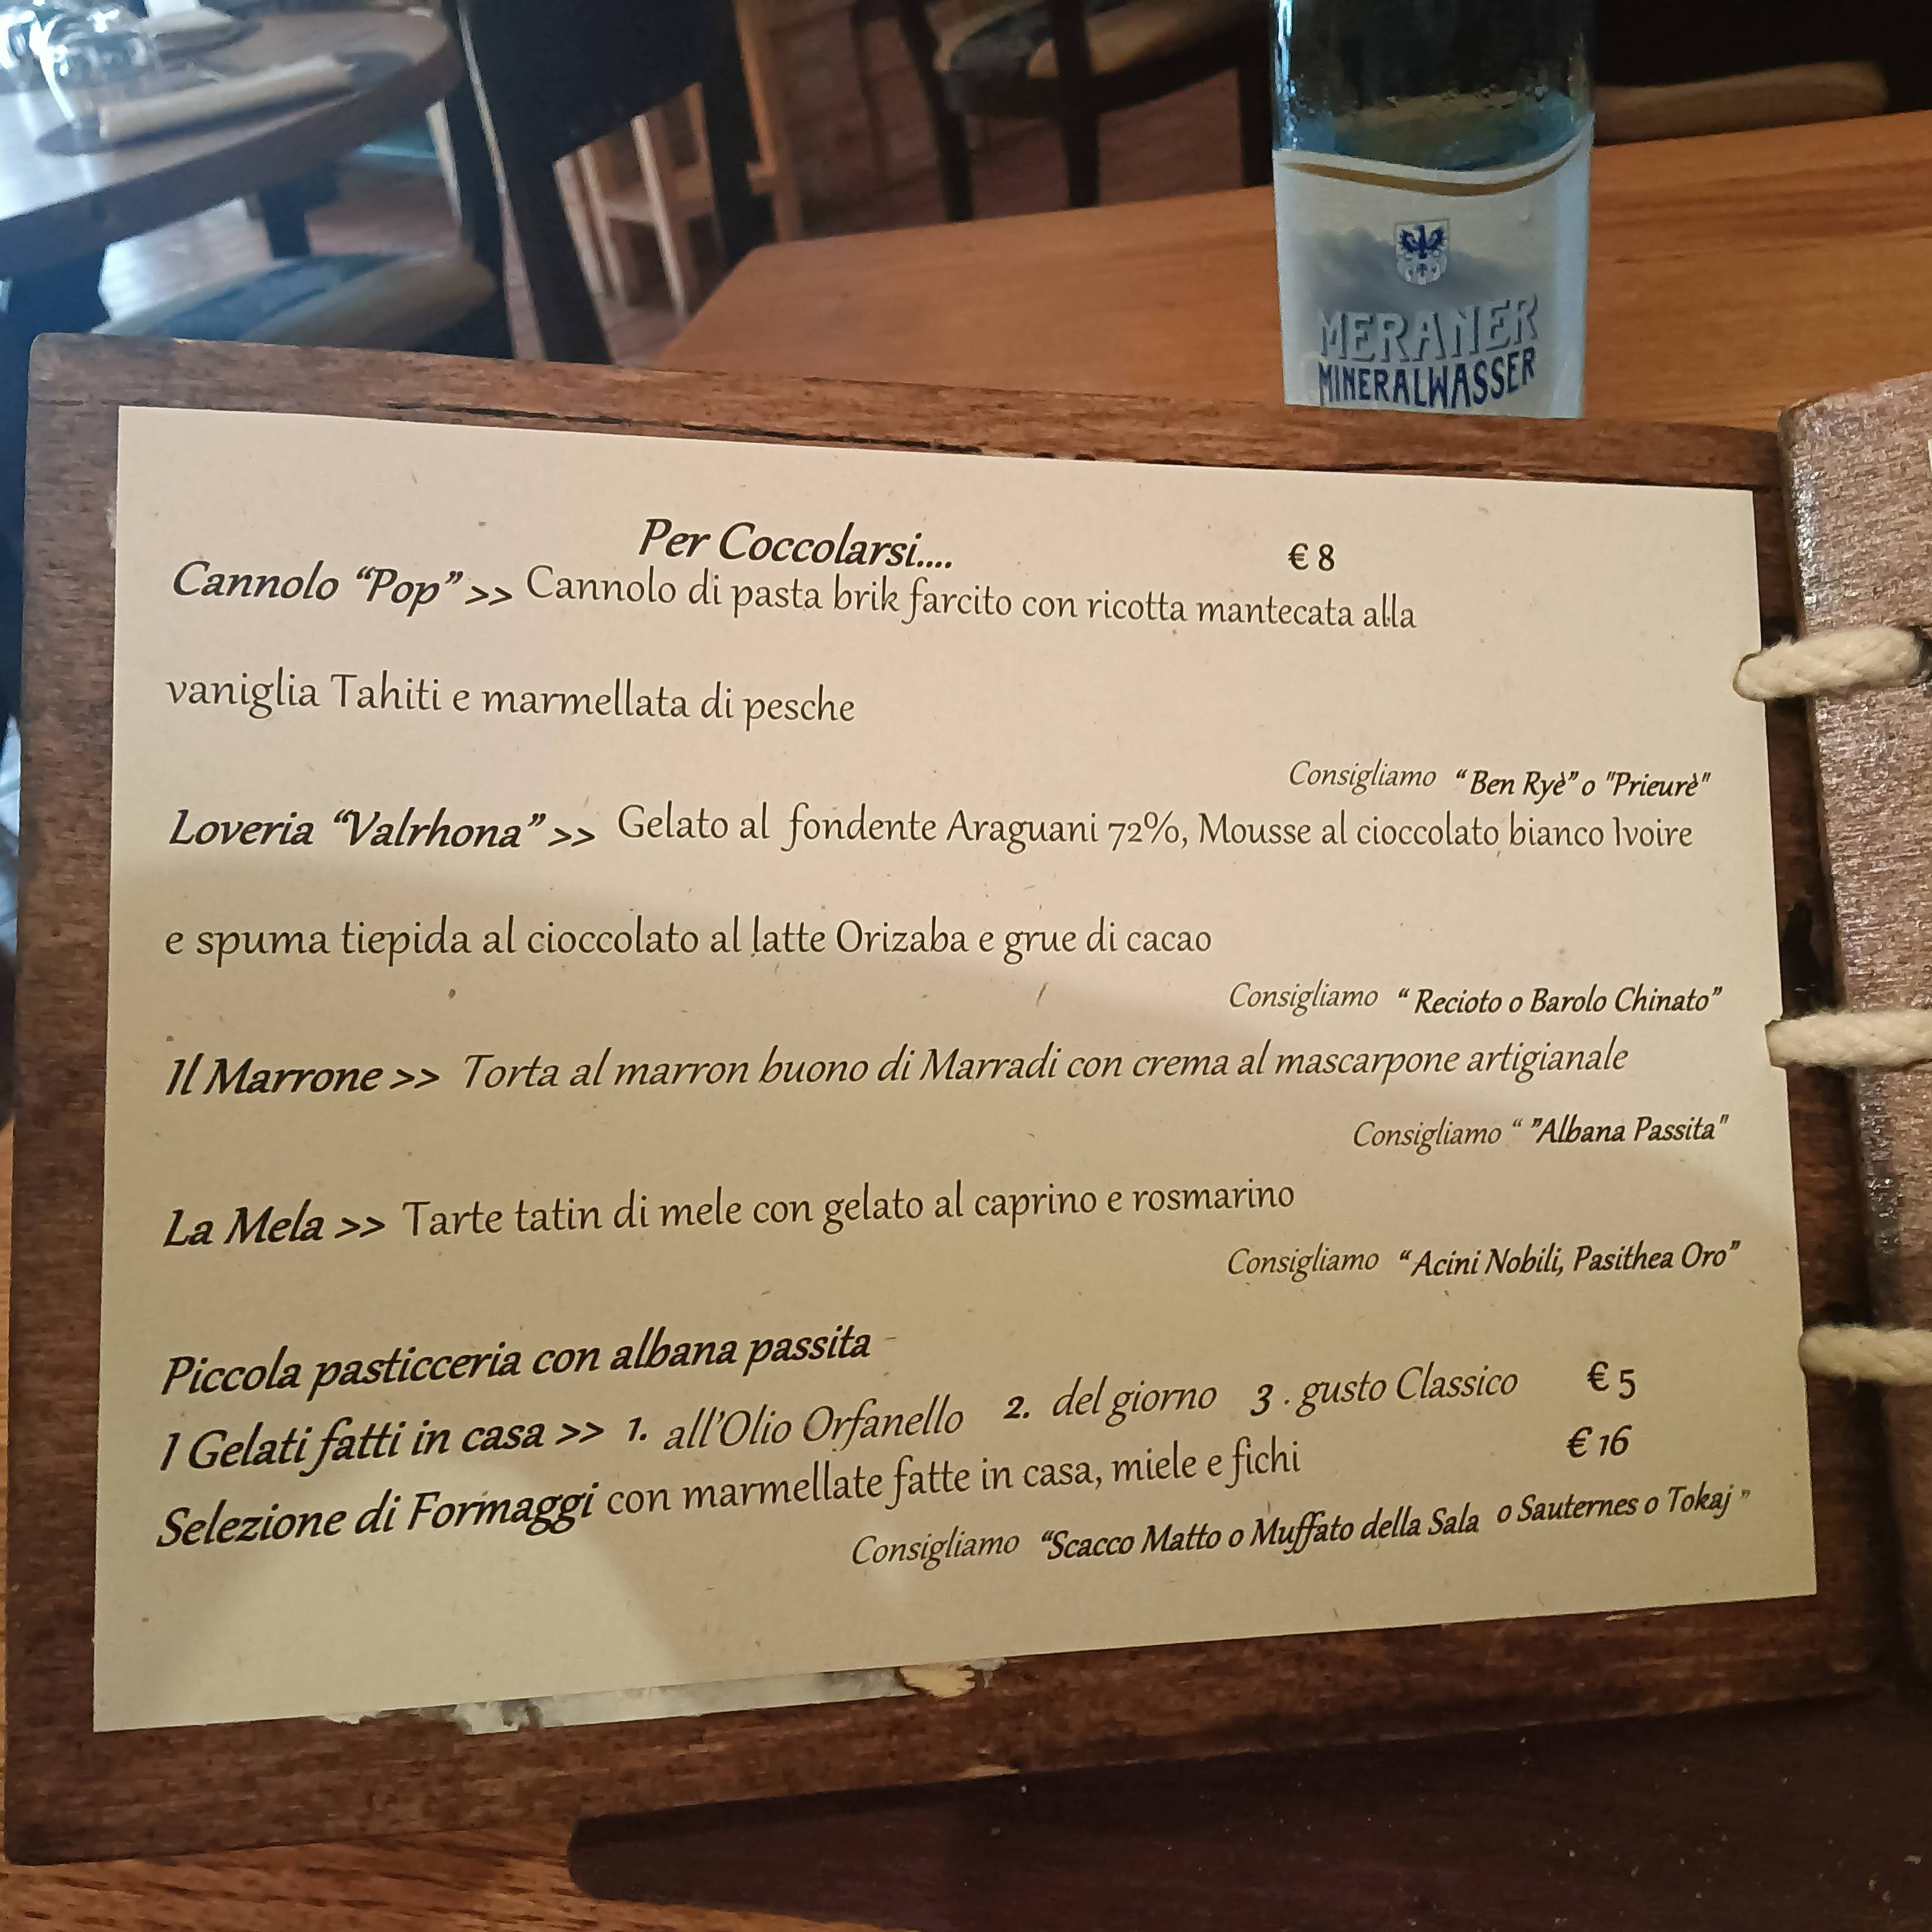 MERANER
MINERALWASSER
Per Coccolarsi.... € 8
Cannolo “Pop” >> Cannolo di pasta brik farcito con ricotta mantecata alla
vaniglia Tahiti e marmellata di pesche
Consigliamo “Ben Ryè” o "Prieurè"
Loveria “Valrhona” >> Gelato al fondente Araguani 72%, Mousse al cioccolato bianco Ivoire
e spuma tiepida al cioccolato al latte Orizaba e grue di cacao
Consigliamo “ Recioto o Barolo Chinato”
Il Marrone >> Torta al marron buono di Marradi con crema al mascarpone artigianale
Consigliamo “ ”Albana Passita"
La Mela >> Tarte tatin di mele con gelato al caprino e rosmarino
Consigliamo “Acini Nobili, Pasithea Oro”
Piccola pasticceria con albana passita -
I Gelati fatti in casa >> 1. all'Olio Orfanello 2. del giorno 3 . gusto Classico € 5
Selezione di Formaggi con marmellate fatte in casa, miele e fichi € 16
Consigliamo “Scacco Matto o Muffato della Sala o Sauternes o Tokaj ”